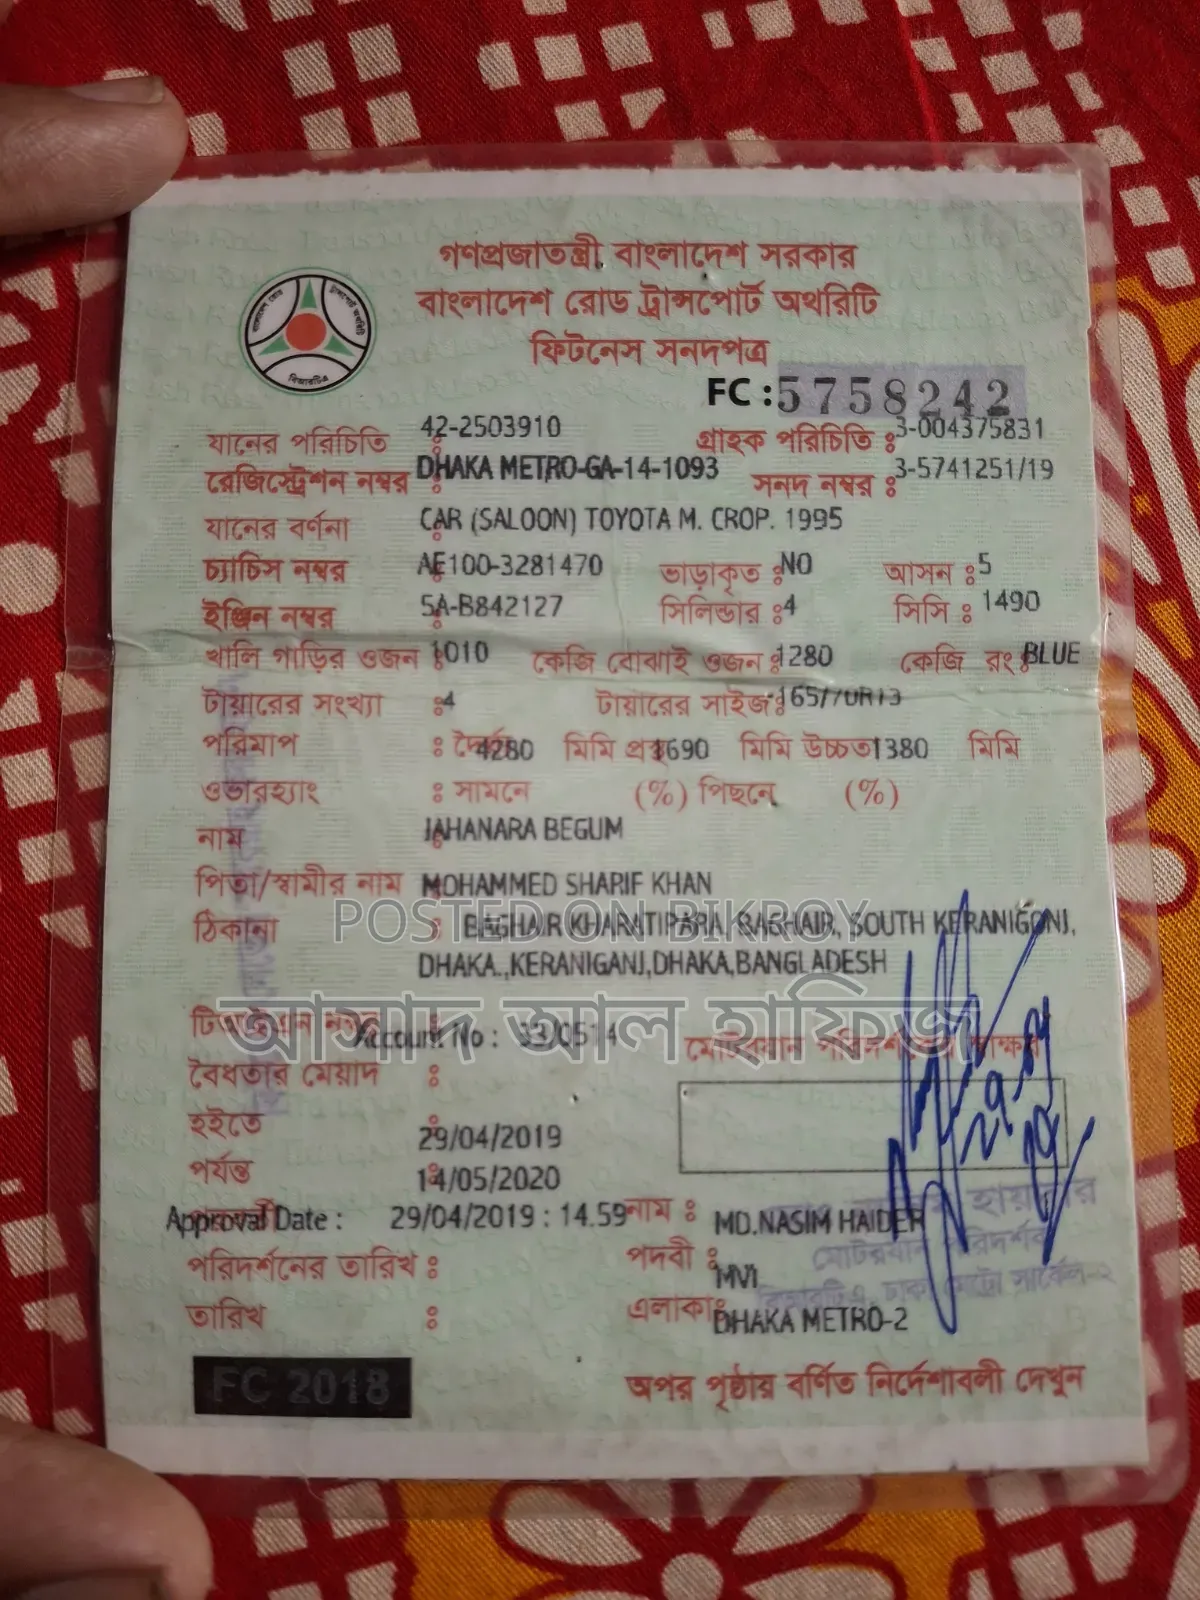 গণপ্রজাতন্ত্রী বাংলাদেশ সরকার
বাংলাদেশ রোড ট্রান্সপোর্ট অথরিটি
ফিটনেস সনদপত্র
বিআরটিএ
FC : 5758242
যানের পরিচিতি : 42-2503910 গ্রাহক পরিচিতি : 3-004375831
রেজিস্ট্রেশন নম্বর : DHAKA METRO-GA-14-1093 সনদ নম্বর : 3-5741251/19
যানের বর্ণনা : CAR (SALOON) TOYOTA M. CROP. 1995
চ্যাচিস নম্বর : AE100-3281470 ভাড়াকৃত : NO আসন : 5
ইঞ্জিন নম্বর : 5A-B842127 সিলিন্ডার : 4 সিসি : 1490
খালি গাড়ির ওজন : 1010 কেজি বোঝাই ওজন : 1280 কেজি রং : BLUE
টায়ারের সংখ্যা : 4 টায়ারের সাইজ : 165/70R13
পরিমাপ : দৈর্ঘ্য 4280 মিমি প্রস্থ 1690 মিমি উচ্চতা 1380 মিমি
ওভারহ্যাং : সামনে (%) পিছনে (%)
নাম : JAHANARA BEGUM
পিতা/স্বামীর নাম MOHAMMED SHARIF KHAN
ঠিকানা : BAGHAIR KHARATIPARA, BAGHAIR, SOUTH KERANIGONJ,
POSTED ON BIKROY
DHAKA.,KERANIGANJ,DHAKA,BANGLADESH
আসাদ আল হাফিজ
Account No : 33/0514 মোটরযান পরিদর্শকের স্বাক্ষর
বৈধতার মেয়াদ :
হইতে : 29/04/2019
পর্যন্ত : 14/05/2020
Approval Date : 29/04/2019 : 14.59 নাম : MD.NASIM HAIDER
পরিদর্শনের তারিখ : পদবী : MVI
তারিখ : এলাকা : DHAKA METRO-2
FC 2018
অপর পৃষ্ঠায় বর্ণিত নির্দেশাবলী দেখুন